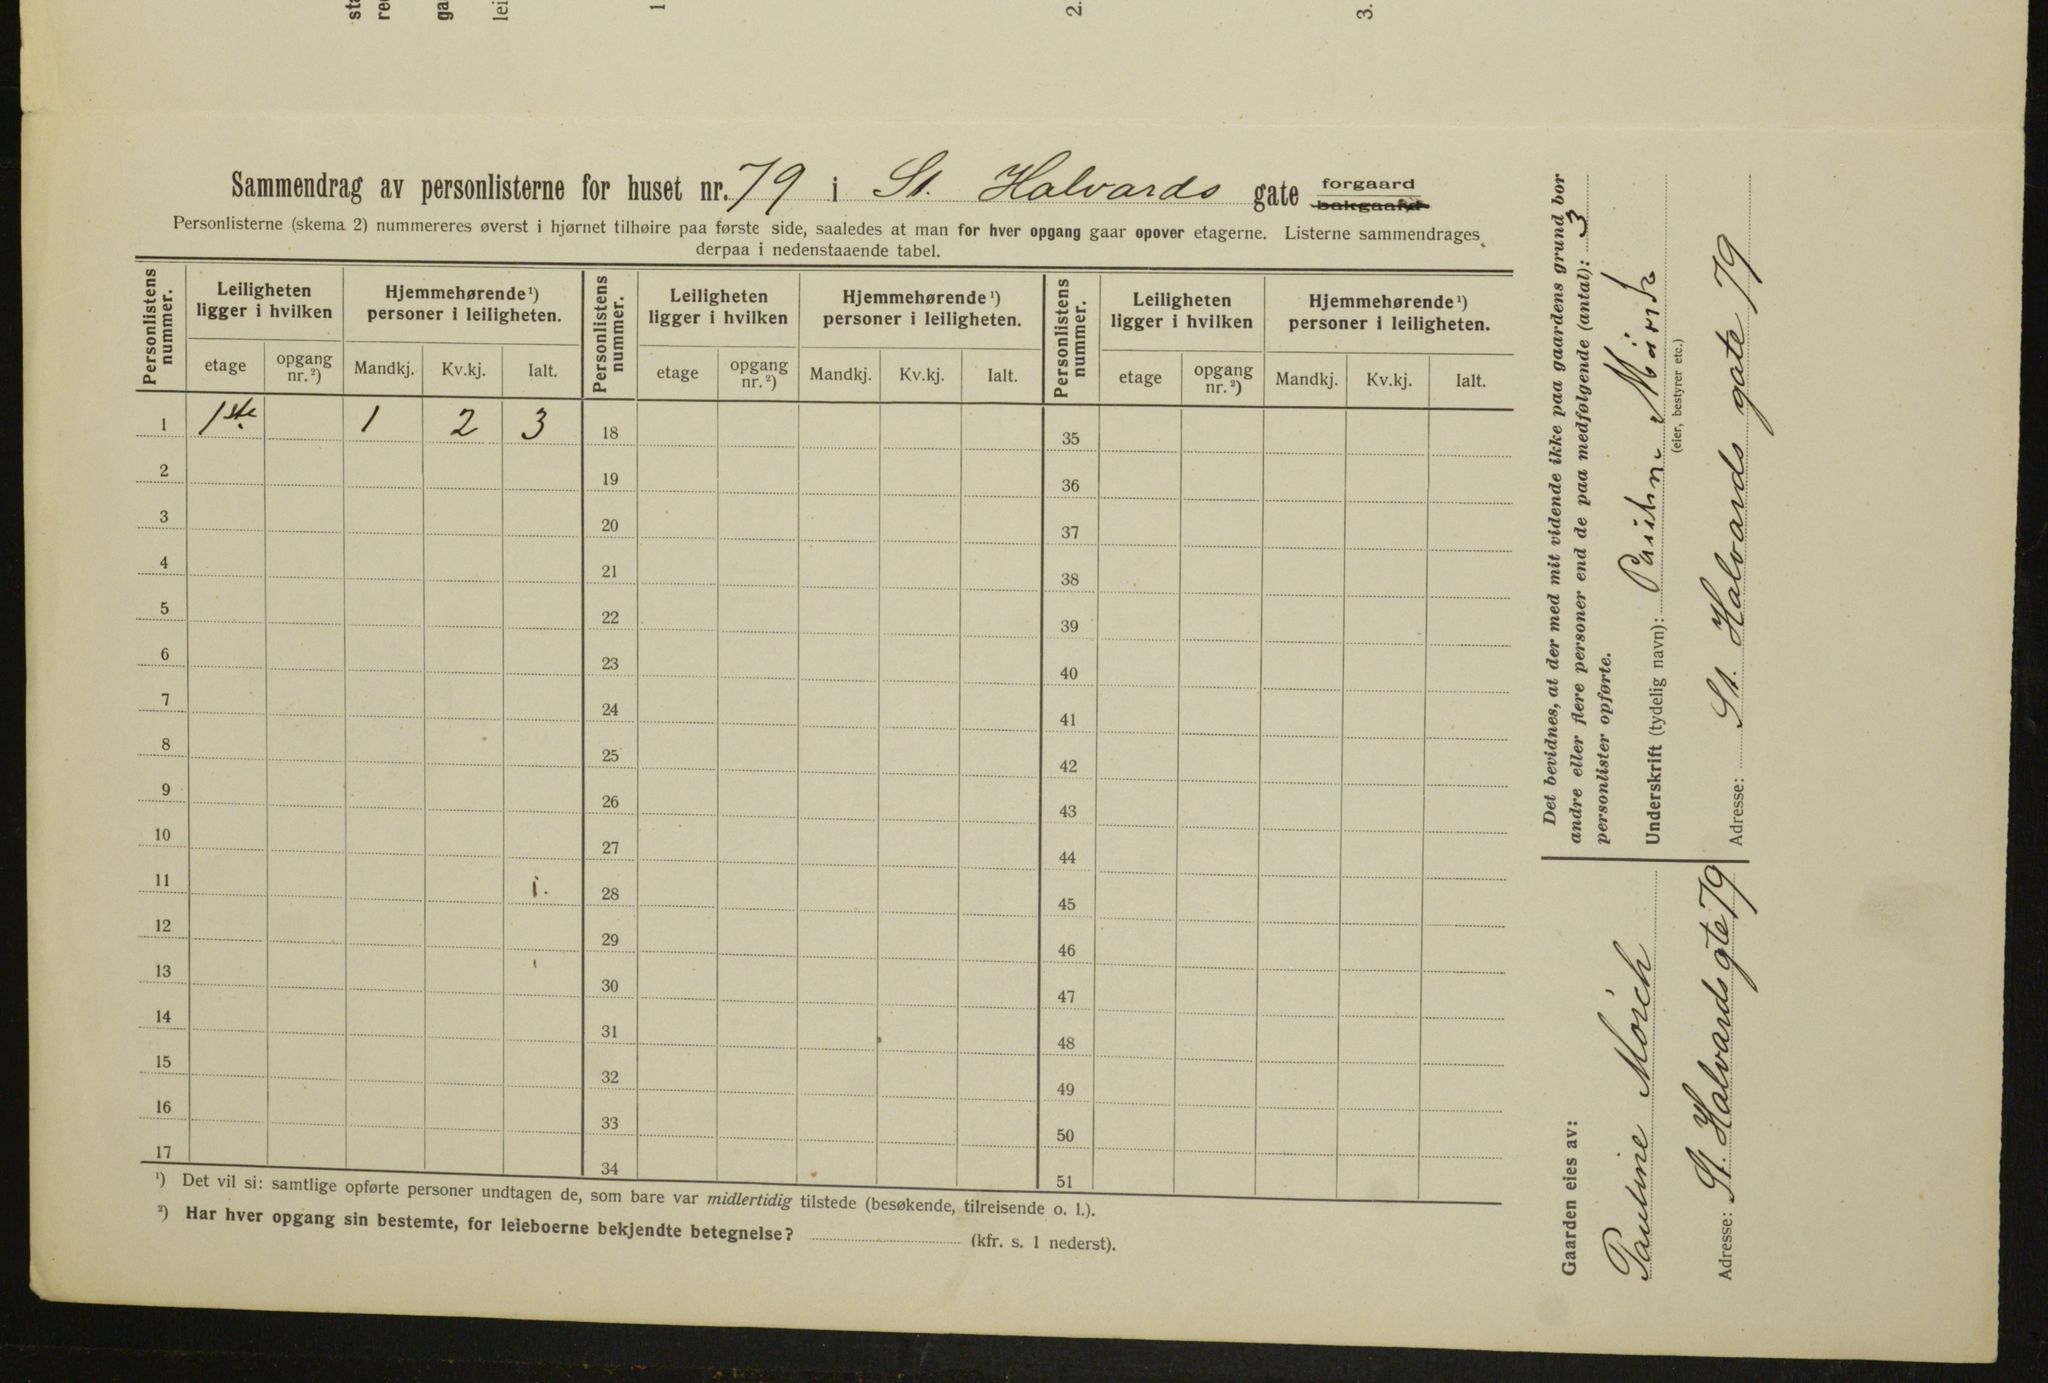 Sammendrag av personlisterne for huset nr. 79 i St. Halvards gate forgaard bakgaard
Personlisterne (skema 2) nummereres øverst i hjørnet tilhøire paa første side, saaledes at man for hver opgang gaar opover etagerne. Listerne sammendrages
derpaa i nedenstaaende tabel.
Personlistens nummer. Leiligheten ligger i hvilken Hjemmehørende ¹) personer i leiligheten. Personlistens nummer. Leiligheten ligger i hvilken Hjemmehørende ¹) personer i leiligheten. Personlistens nummer. Leiligheten ligger i hvilken Hjemmehørende ¹) personer i leiligheten.
etage opgang nr. ²) Mandkj. Kv.kj. Ialt. etage opgang nr. ²) Mandkj. Kv.kj. Ialt. etage opgang nr. ²) Mandkj. Kv.kj. Ialt.
1 1ste 1 2 3 18 35
2 19 36
3 20 37
4 21 38
5 22 39
6 23 40
7 24 41
8 25 42
9 26 43
10 27 44
11 28 45
12 29 46
13 30 47
14 31 48
15 32 49
16 33 50
17 34 51
¹) Det vil si: samtlige opførte personer undtagen de, som bare var midlertidig tilstede (besøkende, tilreisende o. l.).
²) Har hver opgang sin bestemte, for leieboerne bekjendte betegnelse? (kfr. s. 1 nederst).
Gaarden eies av:
Pauline Mörch
Adresse: St. Halvardsgte 79
Det bevidnes, at der med mit vidende ikke paa gaardens grund bor
andre eller flere personer end de paa medfølgende (antal): 3
personlister opførte.
Underskrift (tydelig navn): Pauline Mörch
(eier, bestyrer etc.)
Adresse: St. Halvards gate 79
1
2.
3.